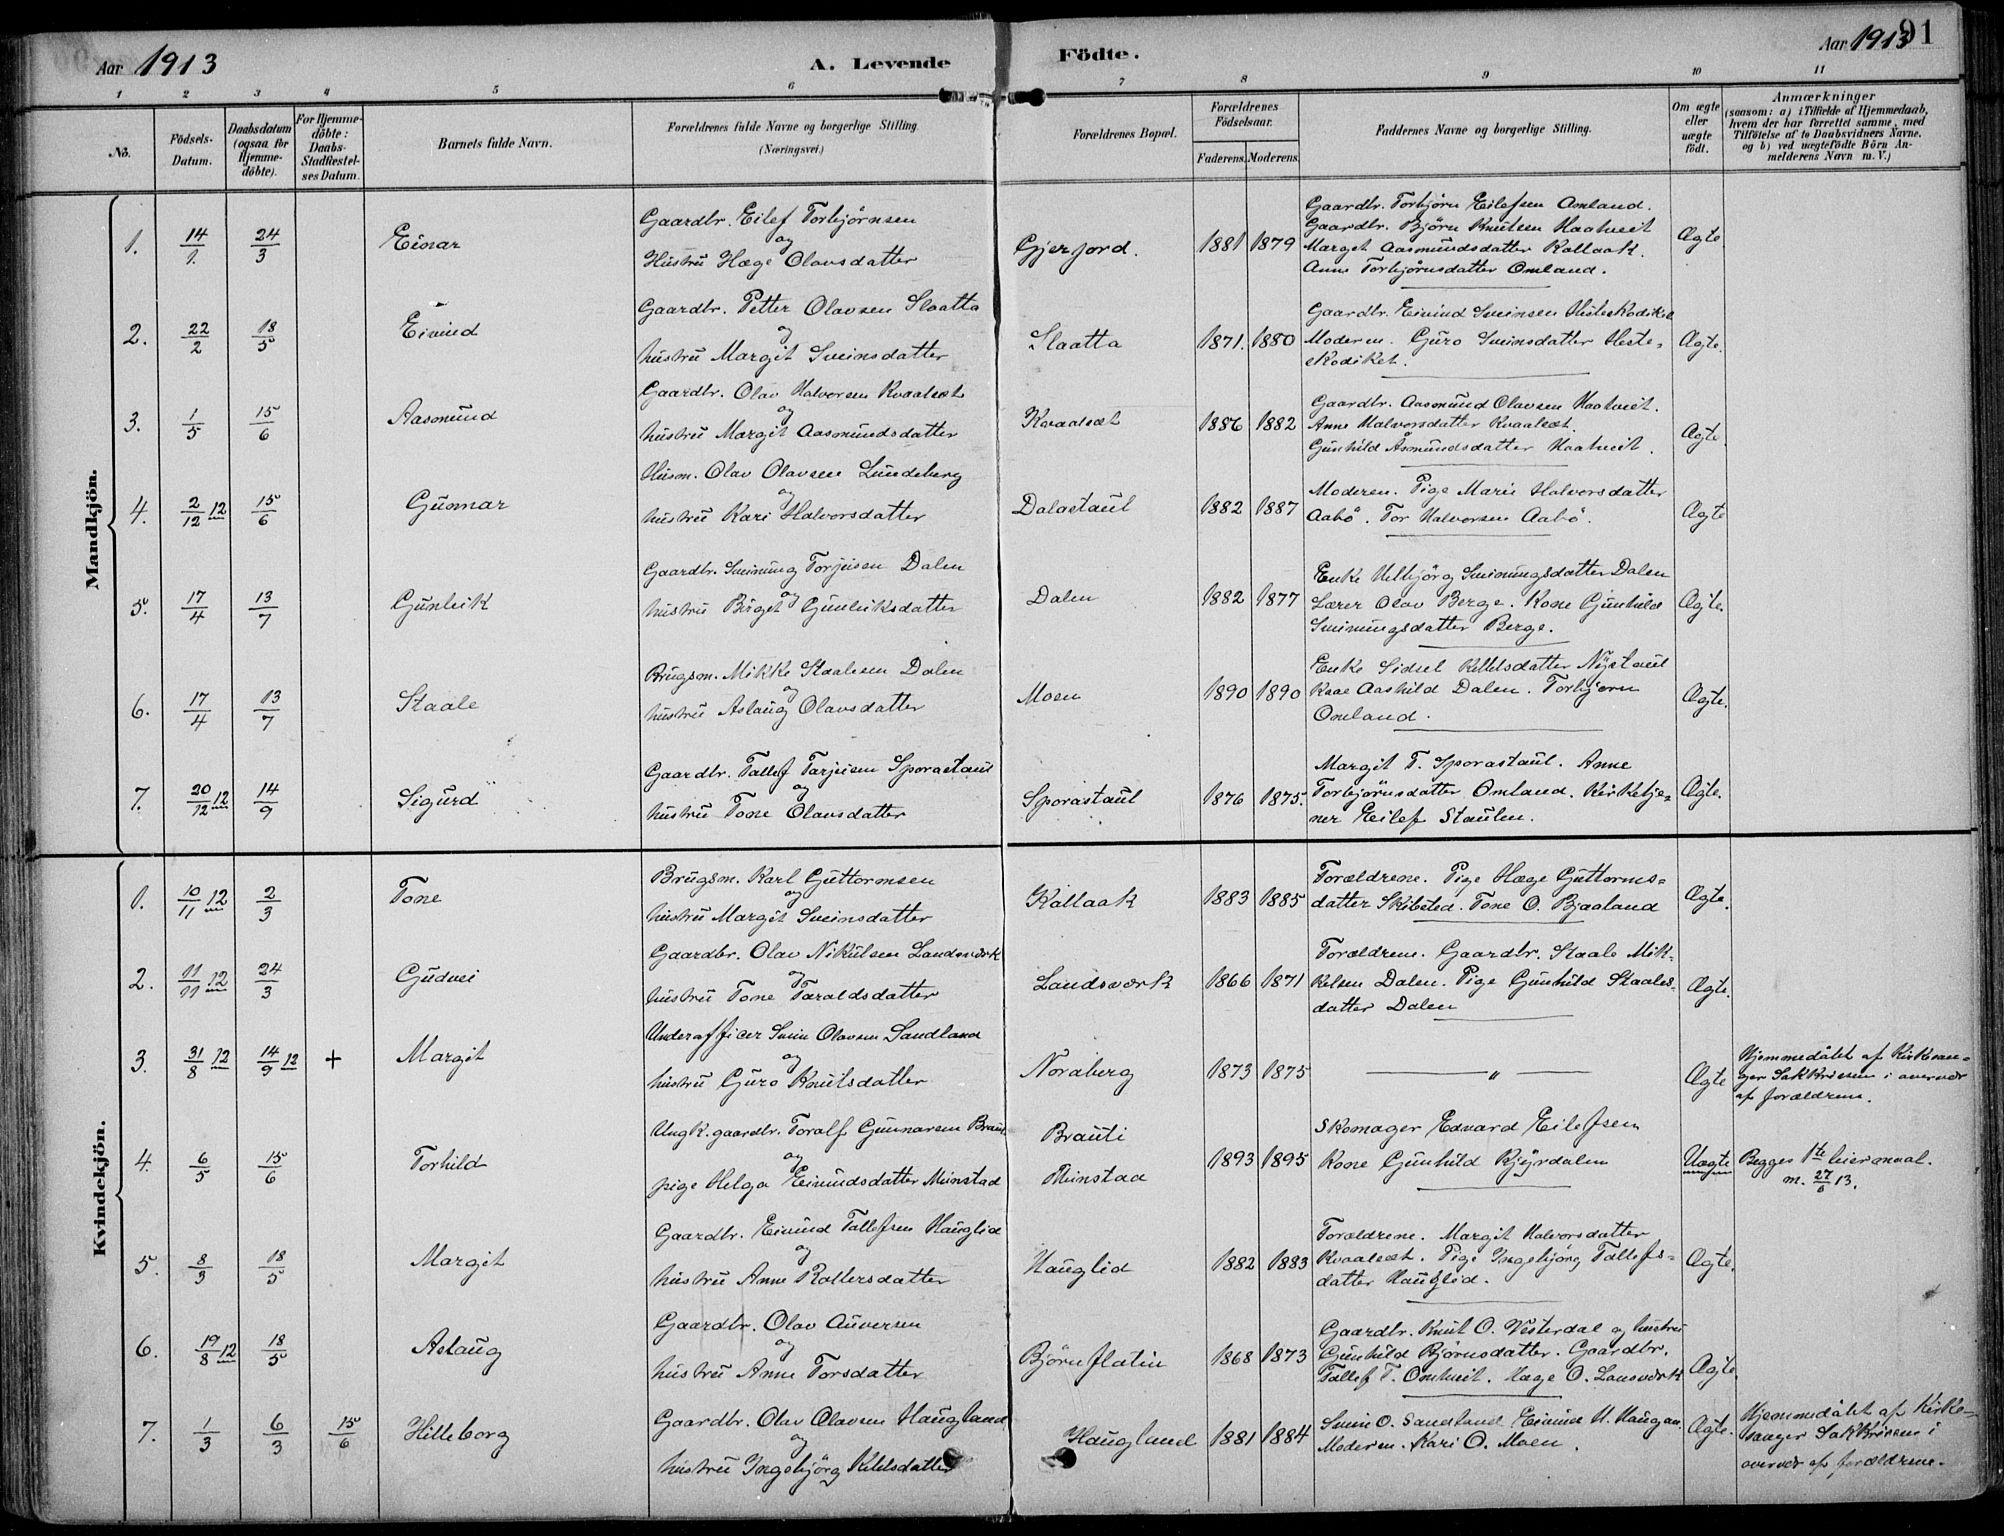 Aar 1913
A. Levende Födte.
Aar 1913
91
1 2 3 4 5 6 7 8 9 10 11
No.
Födsels-Datum.
Daabsdatum (ogsaa for Hjemme-döbte).
For Hjemme-döbte: Daabs-Stadfæstel-ses Datum.
Barnets fulde Navn.
Forældrenes fulde Navne og borgerlige Stilling. (Næringsvei.)
Forældrenes Bopæl.
Forældrenes Födselsaar.
Faderens. Moderens.
Faddernes Navne og borgerlige Stilling.
Om ægte eller uægte födt.
Anmærkninger
(saasom: a) i Tilfælde af Hjemmedaab, hvem der har forrettet samme, med Tilföielse af to Daabsvidners Navne, og b) ved uægtefödte Börn An-melderens Navn m. V.)
Mandkjön.
1. 14/1. 24/3 Einar
Gaardbr. Eilef Torbjörnsen
og
Hustru Hæge Olavsdatter
Gjerfjord. 1881 1879
Gaardbr. Torbjörn Eilefsen Omland.
Gaardbr. Björn Knutsen Haatveit
Marget Aasmundsdatter Kallaak.
Anne Torbjörnsdatter Omland.
Ægte
2. 22/2 18/5 Eivind
Gaardbr. Petter Olavsen Slaatta
og
hustru Margit Sveinsdatter
Slaatta 1871. 1880
Gaardbr. Eivind Sveinsen Hesteskodiket
Moderen. Guro Sveinsdatter Heste-
skodiket.
Ægte.
3. 1/5 15/6 Aasmund
Gaardbr. Olav Halvorsen Kvaalsæt
og
hustru Margit Aasmundsdatter
Kvaalsæt 1886 1882
Gaardbr. Aasmund Olavsen Haatveit.
Anne Halvorsdatter Kvaalsæt.
Gunhild Åsmundsdatter Haatveit.
Ægte
4. 2/12 12 15/6 Gunnar
Husm. Olav Olavsen Lundeberg
og
hustru Kari Halvorsdatter
Dalastaul 1882 1887
Moderen. Pige Marie Halvorsdatter
Aabö. Tor Halvorsen Aabö.
Ægte
5. 17/4 13/7 Gunleik
Gaardbr. Sveinung Torjeisen Dalen
og
hustru Birget Gunleiksdatter
Dalen 1882 1877
Enke Uelbjörg Sveinungsdatter Dalen
Lærer Olav Berge. Kone Gunhild
Sveinungsdatter Berge.
Ægte.
6. 17/4 13/7 Staale
Brugsm. Mikke Staalesen Dalen
og
hustru Aslaug Olavsdatter
Moen 1890 1890
Enke Sidsel Kittelsdatter Nystaul
Kone Aashild Dalen. Torbjörn
Omland.
Ægte.
7. 20/12 12 14/9 Sigurd
Gaardbr. Tallef Tarjeisen Sporastaul
og
hustru Tone Olavsdatter
Sporastaul 1876 1875.
Margit T. Sporastaul. Anne
Torbjörnsdatter Omland. Kirketje-
ner Eilef Staulen.
Ægte.
Kvindekjön.
1. 10/11 12 2/3 Tone
Brugsm. Karl Guttormsen
og
hustru Margit Sveinsdatter
Kallaak 1883 1885
Forældrene. Pige Hæge Guttorms-
datter Skibsted. Tone O. Bjaaland
Ægte.
2. 11/11 12 24/3 Gudvei
Gaardbr. Olav Nikulsen Landsværk
og
hustru Tone Taraldsdatter
Landsværk 1866 1871
Forældrene. Gaardbr. Staale Mik-
kelsen Dalen. Pige Gunhild Staales-
datter Dalen
Ægte.
3. 31/8 12 14/9 12 + Margit
Underofficer Svein Olavsen Sandland
og
hustru Guro Knutsdatter
Nordberg 1873 1875
— " —
Ægte
Hjemmedöbt af Kirkesan-
ger Sak Brisem i overvær
af forældrene.
4. 6/5 15/6 Torhild
Ungk. gaardbr. Toralf Gunnarsen Brauti
og
pige Helga Eivindsdatter Meinstad
Brauti
Meinstad
1893 1895
Skomager Edvard Eilefsen
Kone Gunhild Kjyrdalen
Uægte
Begges 1ste leiermaal.
m. 27/6 13.
5. 8/3 18/5 Margit
Gaardbr. Eivind Tallefsen Hauglid
og
hustru Anne Rollefsdatter
Hauglid 1882 1883
Forældrene. Margit Halvorsdatter
Kvaalsæt. Pige Ingebjörg Tallefs-
datter Hauglid.
Ægte.
6. 19/8 12 18/5 Aslaug
Gaardbr. Olav Auversen
og
hustru Anne Torsdatter
Björnflatin 1868 1873
Gaardbr. Knut O. Vesterdal og hustru
Gunhild Björnsdatter. Gaardbr.
Tallef T. Omtveit. Hæge O. Lansværk
Ægte.
7. 1/3 6/3 15/6 Hilleborg
Gaardbr. Olav Olavsen Haugland
og
hustru Ingebjörg Kittelsdatter
Haugland 1881 1884
Svein O. Sandland Eivind H. Haugan.
Moderen. Kari O. Moen.
Ægte.
Hjemmedöbt af Kirke-
sanger Sak Brisem i
overvær af forældrene.